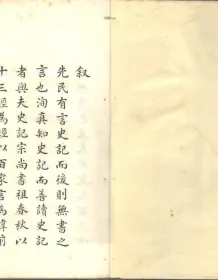 叙
先民有言史记而後则無書之
言也洵真知史記而善讀史記
者與夫史記宗尚書祖春秋以
十三經為經以百家言為緯前